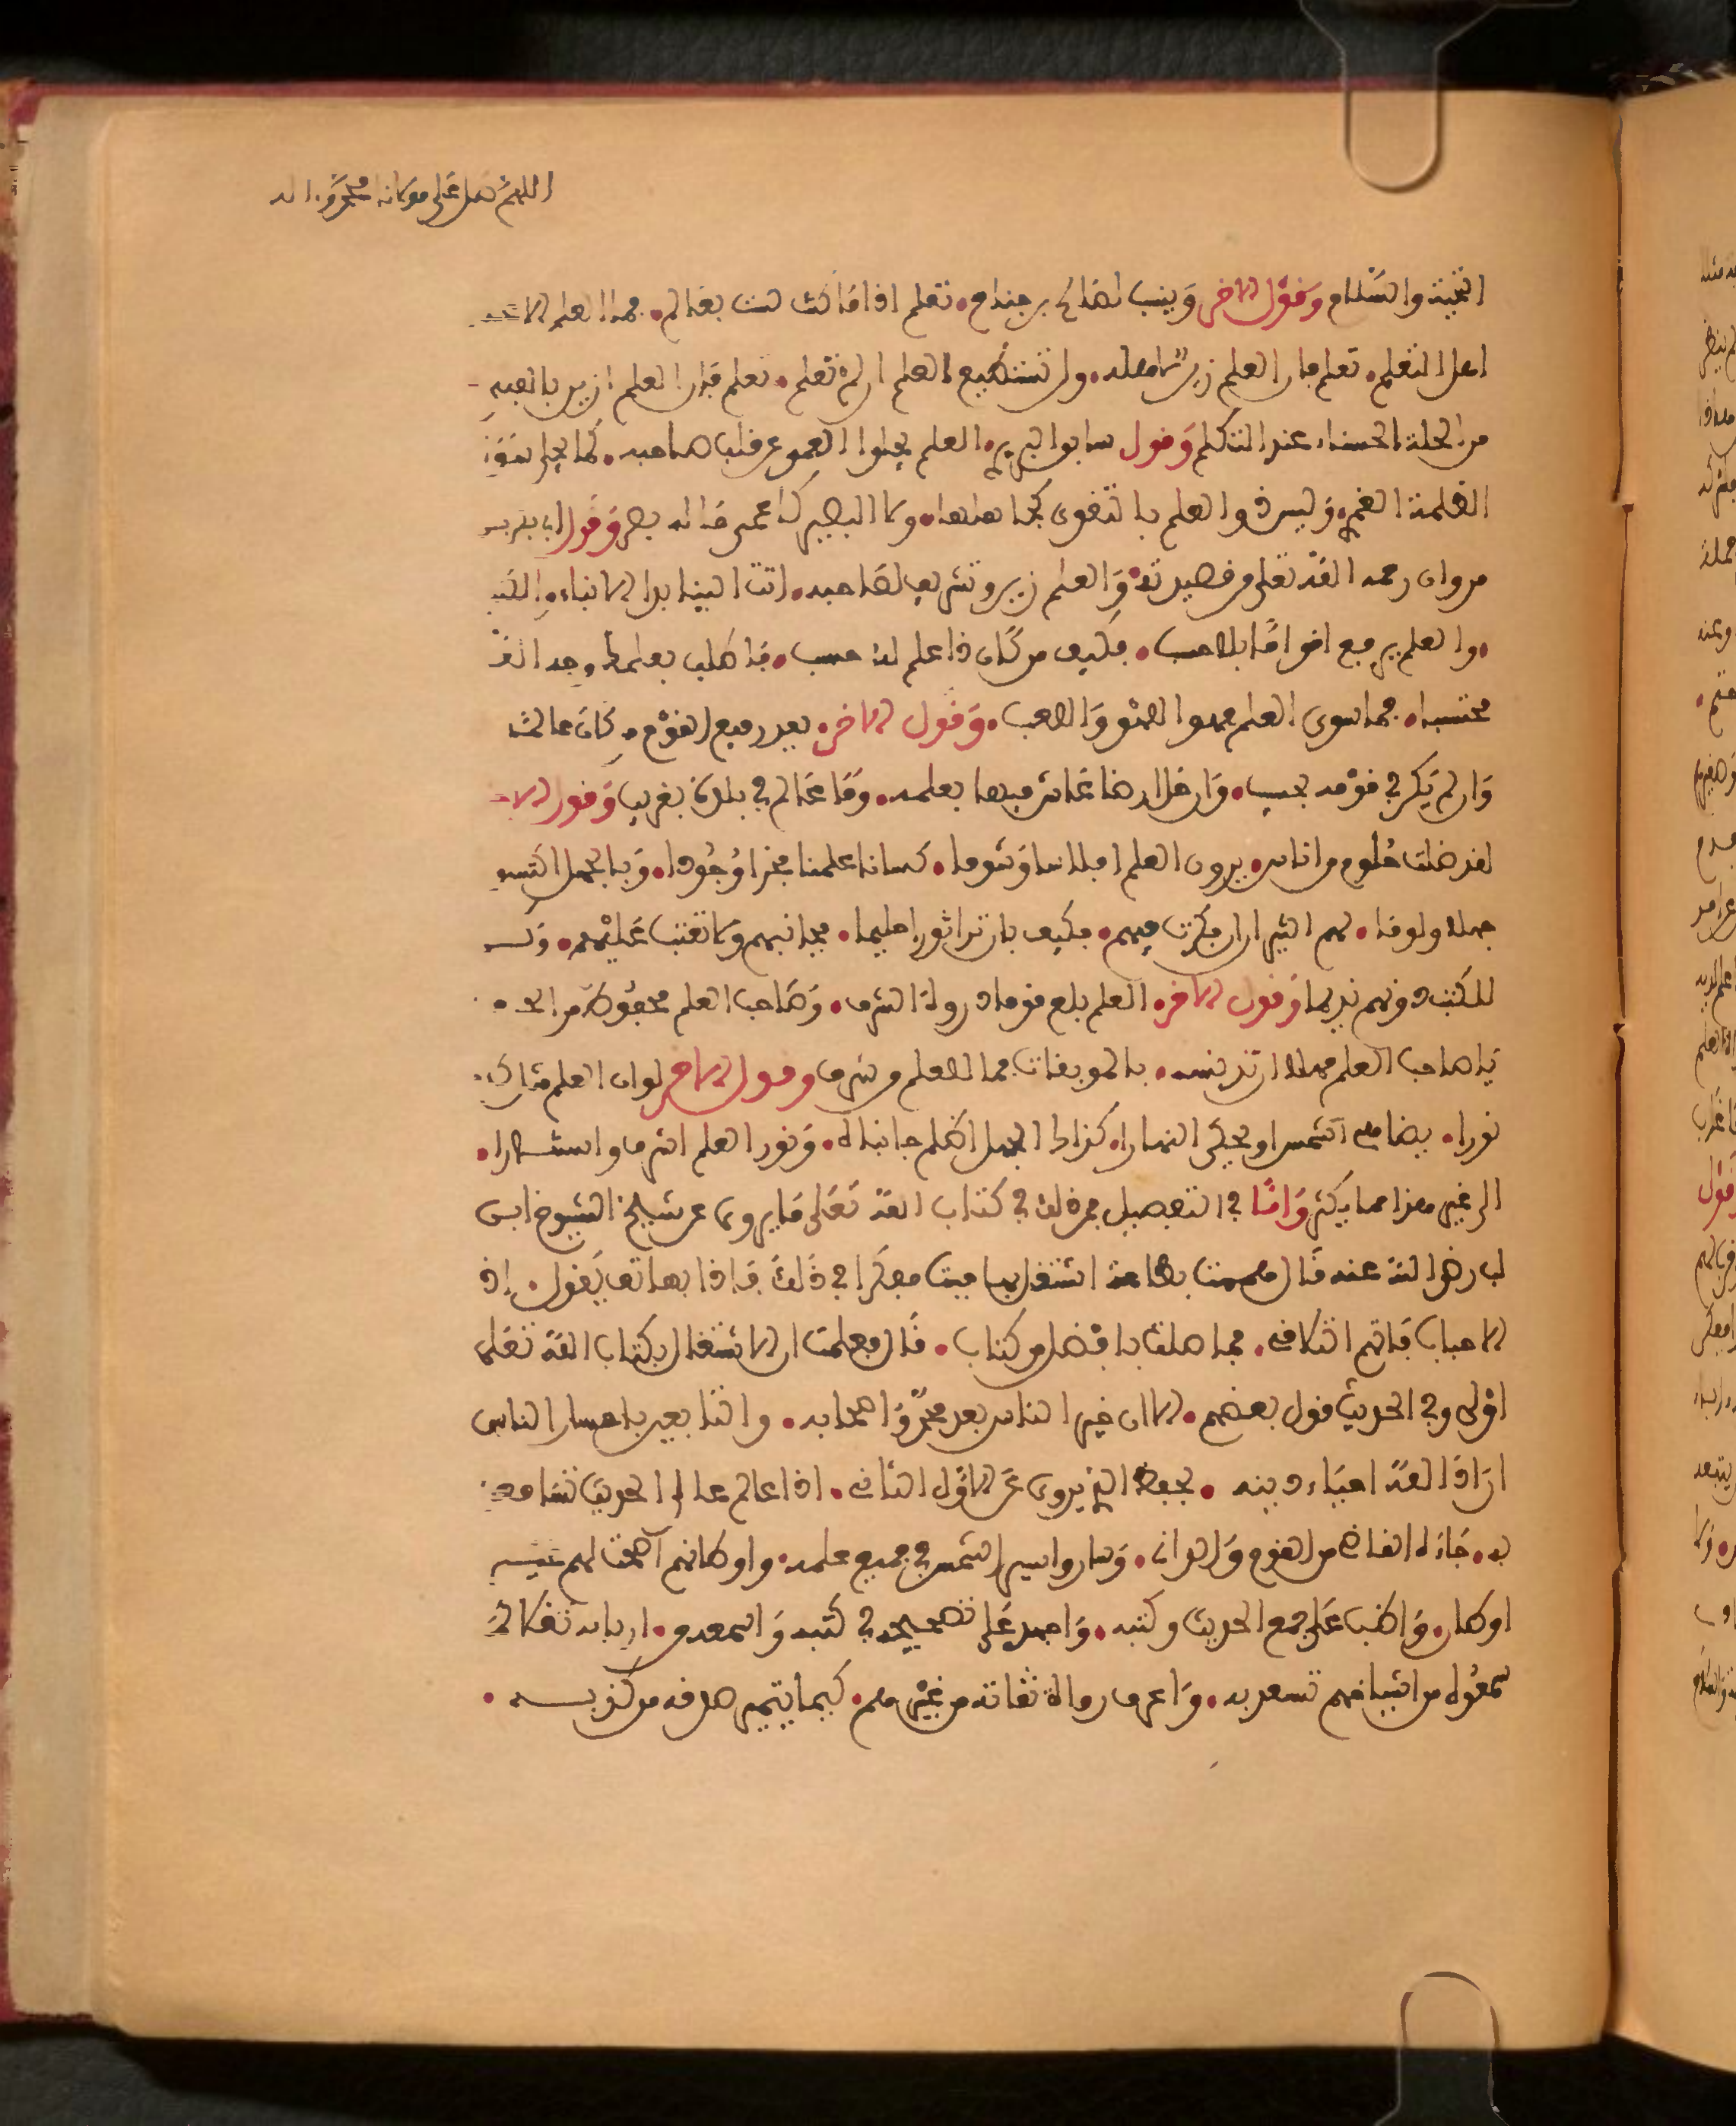 اللهم صل على مولانا محمد وءاله
التحية والسلام وقول الاخر وينسب لصالح بن جناح • تعلم اذا ما كنت لست بعالم • فما العلم الا عند
اهل التعلم • تعلم فان العلم زين لاهله • ولن تستطيع العلم ان لم تعلم • تعلم فان العلم ازين بالفتى
من الحلة الحسناء عند التكلم وقول سابق البربري • العلم يجلوا العمى عن قلب صاحبه • كما يجلي سواد
الظلمة القمر • وليس ذو العلم بالتقوى كجاهلها • ولا البصير كاعمى ما له بصر وقول ابي بكر بن
مروان رحمه الله تعالى من قصيدته • والعلم زين وتشريف لصاحبه • اتت الينا بذا الانباء والكتب
• والعلم يرفع اقواما بلا حسب • فكيف من كان ذا علم له حسب • فاطلب بعلمك وجه الله
محتسبا • فما سوى العلم فهو اللهو واللعب • وقول الاخر • يعد رفيع القوم من كان عالما
وان لم يكن في قومه بحسيب • وان حل ارضا عاش فيها بعلمه • وما عالم في بلدة بغريب وقول الاخر
لقد ضلت حلوم من اناس • يرون العلم افلاسا وشوما • كسانا علمنا فخرا وجودا • وبالجهل اكتسوا
جهلا ولوما • هم الثيران ان فكرت فيهم • فكيف بان ترا ثورا حليما • فجانبهم ولا تعتب عليهم • وكن
للكتب دونهم نديما وقول الاخر • العلم بلغ قوما ذروة الشرف • وصاحب العلم محفوظ من
يا صاحب العلم مهلا لا تدنسه • بالموبقات فما للعلم من خلف وقول الاخر لو ان العلم مثل كان
نورا • يضاهي الشمس او يحكي النهارا • كذاك الجهل اظلم جانباه • ونور العلم اشرق واستنارا •
الى غير هذا مما يكثر واما في التفصيل فمن ذلك في كتاب الله تعالى ما يروى عن شيخ الشيوخ ابن
لب رضي الله عنه قال هممت بطاعة اشتغل بها فبت مفكرا في ذلك فاذا بهاتف يقول • اذ
الاحباب فاتهم التلاقي • فما صلة بافضل من كتاب • قال فعلمت ان الاشتغال بكتاب الله تعلى
اولى وفي الحديث قول بعضهم • الا ان خير الناس بعد محمد واصحابه • والتابعين باحسان اناس
اراد الله احياء دينه • بحفظ الذي يروى عن الاول الثاني • اذا عالم عالي الحديث تسامعوا
به • جاءه القاصي من القوم والداني • وساروا سير الشمس في جمع علمه • واوطانهم اضحت لهم غير
اوطان • واظب على جمع الحديث وكتبه • واجهد على تصحيحه في كتبه واسمعه من • اربابه نقلا كما
سمعوه من اشياخهم تسعد به • واعرف رواة ثقاته من غيرهم • كيما يتميز صدقه من كذبه •